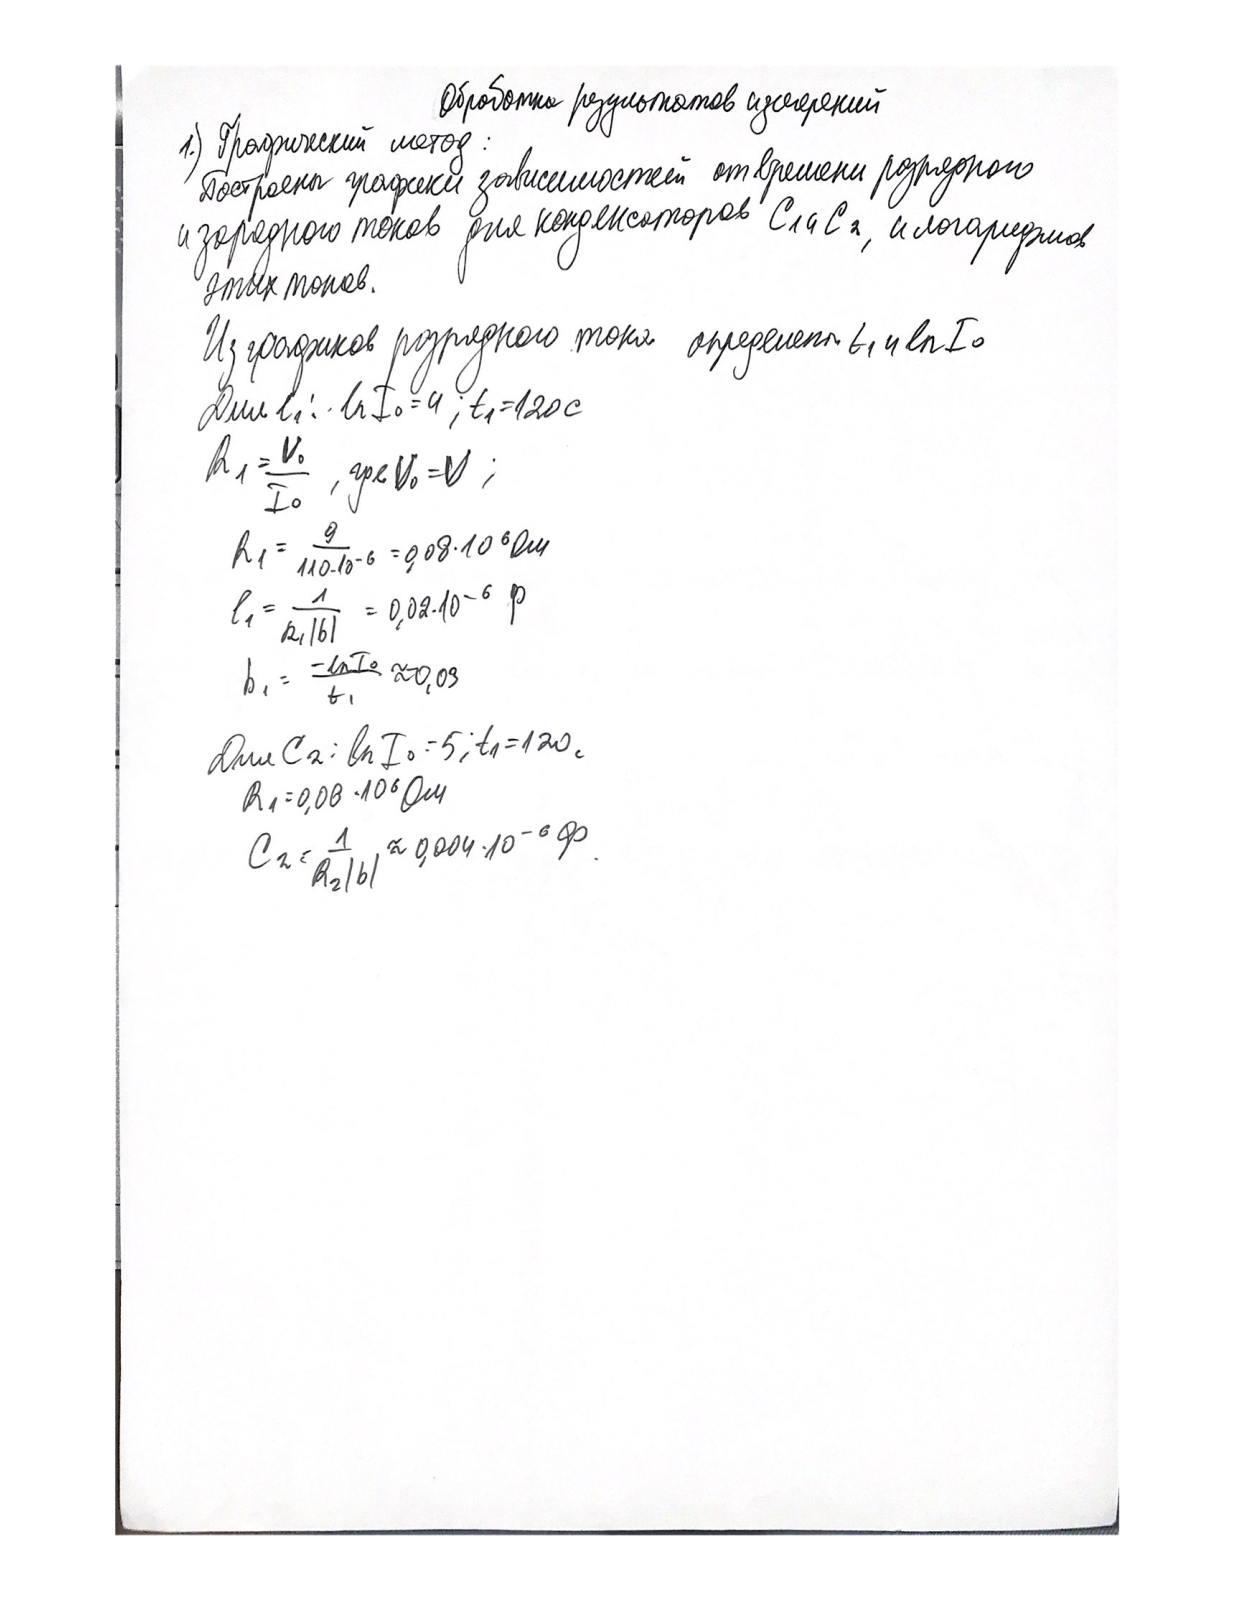 Обработка результатов измерений
1.) Графический метод:
Построены графики зависимостей от времени разрядного
и зарядного токов для конденсаторов C₁ и C₂, и логарифмов
этих токов.
Из графиков разрядного тока определяем t₁ и ln I₀
Для C₁: ln I₀ = 4; t₁ = 120 с
R₁ = V₀/I₀, где V₀ = V;
R₁ = 9/110·10⁻⁶ = 0,08·10⁶ Ом
C₁ = 1/R₁|b| = 0,02·10⁻⁶ Ф
b₁ = -ln I₀/t₁ ≈ 0,03
Для C₂: ln I₀ = 5; t₁ = 120 с
R₁ = 0,08·10⁶ Ом
C₂ = 1/R₂|b| ≈ 0,004·10⁻⁶ Ф.